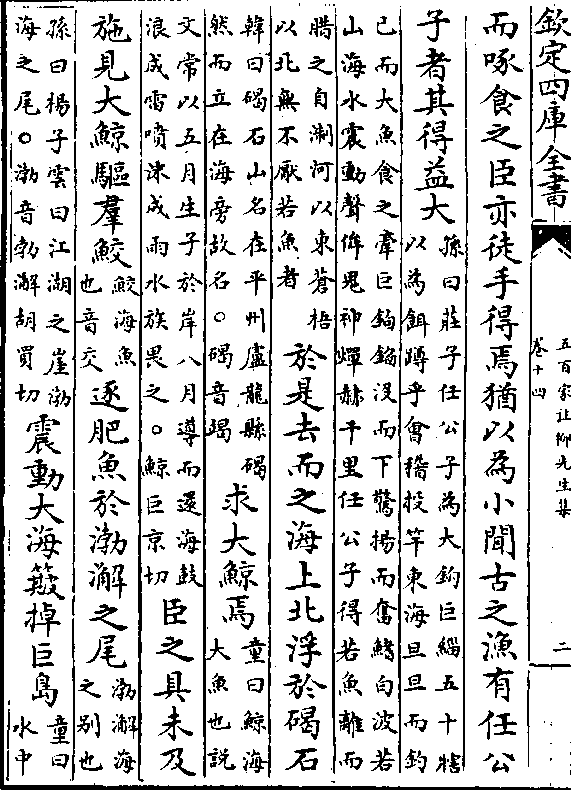 欽定四庫全書
五百家註柳先生集
卷十四
二
而啄食之臣亦徒手得焉猶以為小聞古之漁有任公
子者其得益大
孫曰莊子任公子為大鈎巨緇五十犗
以為餌蹲乎會稽投竿東海旦旦而釣
已而大魚食之牽巨鈎錎沒而下驚揚而奮鰭白波若
山海水震動聲侔鬼神燀赫千里任公子得若魚離而
腊之自淛河以東蒼梧
以北無不厭若魚者
於是去而之海上北浮於碣石
韓曰碣石山名在平州盧龍縣碣
然而立在海旁故名○碣音竭
求大鯨焉
童曰鯨海
大魚也說
文常以五月生子於岸八月導而還海鼓
浪成雷噴沫成雨水族畏之○鯨巨京切
臣之具未及
施見大鯨驅羣鮫
鮫海魚
也音交
逐肥魚於渤澥之尾
渤澥海
之别也
孫曰楊子雲曰江湖之崖渤
海之尾○渤音勃澥胡買切
震動大海簸掉巨島
童曰
水中